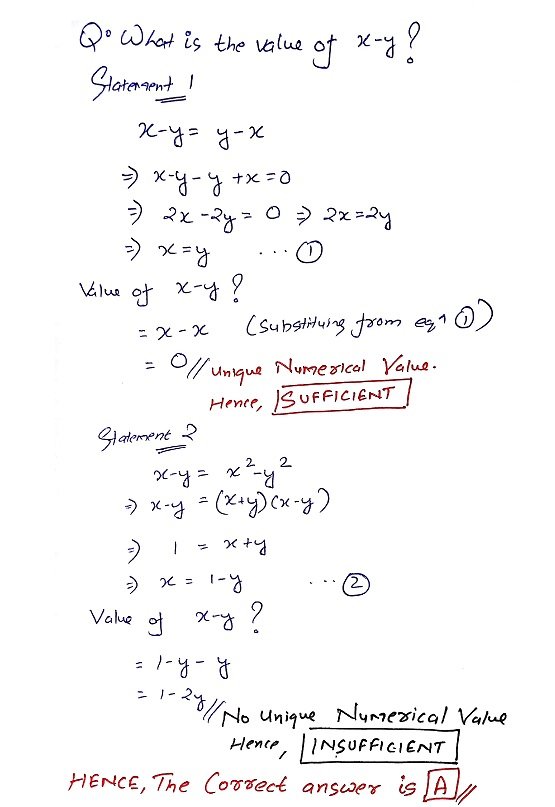 Q. What is the value of x-y?
Statement 1
x-y = y-x
⇒ x-y-y+x=0
⇒ 2x-2y = 0 ⇒ 2x=2y
⇒ x=y ...①
Value of x-y?
= x-x (Substituting from eqn ①)
= 0// Unique Numerical Value.
Hence, SUFFICIENT
Statement 2
x-y = x²-y²
⇒ x-y = (x+y)(x-y)
⇒ 1 = x+y
⇒ x = 1-y ...②
Value of x-y?
= 1-y-y
= 1-2y// No Unique Numerical Value
Hence, INSUFFICIENT
HENCE, The Correct answer is A//